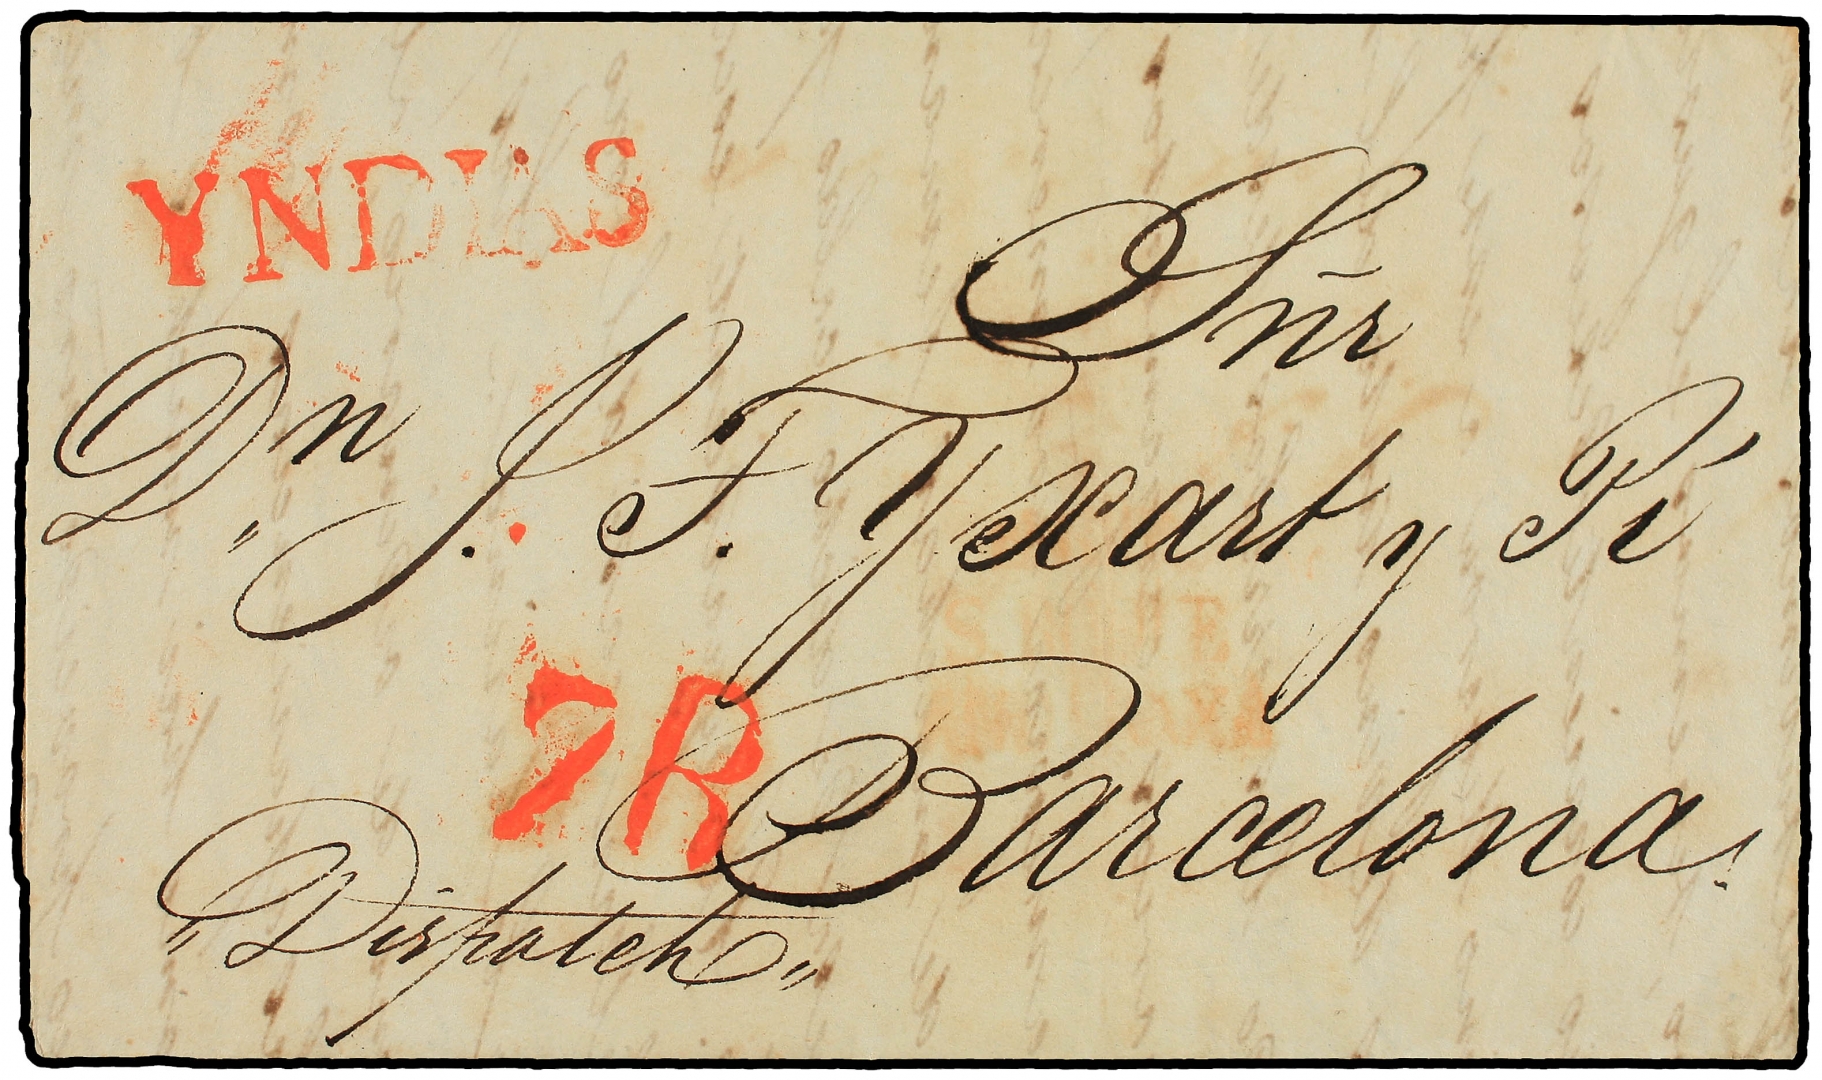 YNDIAS
Sñr
Dn „ J. F. Yxart y Pí
7R
Barcelona.
"Dispatch"